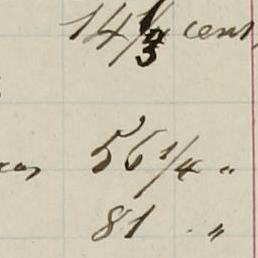 14 1/3 cent,
56 1/4 "
81 "